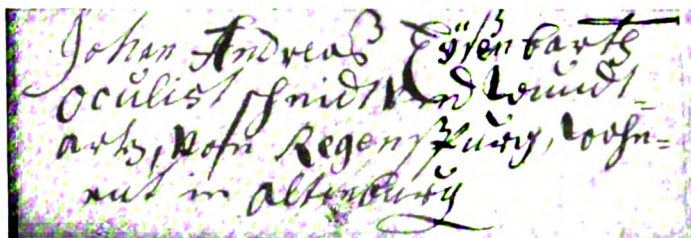 Johan Andreas Eÿsenbarth
Oculist schnidt und Wundt-
artz, von Regenspurg, wohn-
ent in Altenburg